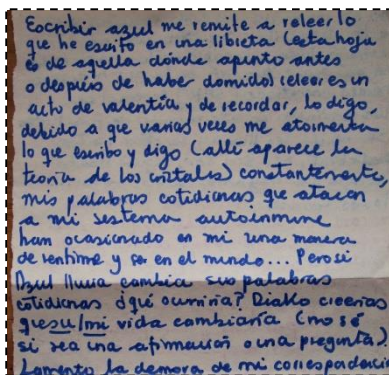 Escribir azul me remite a releer lo
que he escrito en una libreta (esta hoja
es de aquella donde apunto antes
o después de haber dormido) releer es un
acto de valentía y de recordar, lo digo,
debido a que varias veces me atormenta
lo que escribo y digo (allí aparece la
teoría de los cristales) constantemente,
mis palabras cotidianas que atacan
a mi sistema autoinmune
han ocasionado en mi una manera
de sentirme y ser en el mundo... Pero si
Azul lluvia cambia sus palabras
cotidianas ¿qué ocurriría? Diablo creerías
que su/mi vida cambiaría (no sé
si sea una afirmación o una pregunta).
Lamento la demora de mi correspondencia